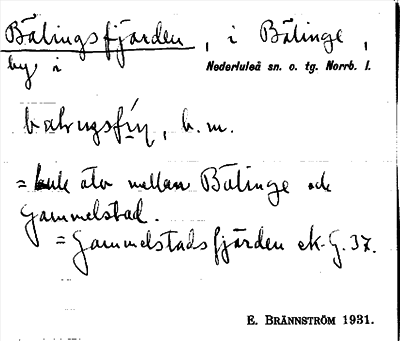 Bälingsfjärden, i Bälinge,
by i Nederluleå sn. o. tg. Norrb. l.
b.m.
= älv mellan Bälinge och
Gammelstad.
= Gammelstadsfjärden ek. G. 37.
E. BRÄNNSTRÖM 1931.